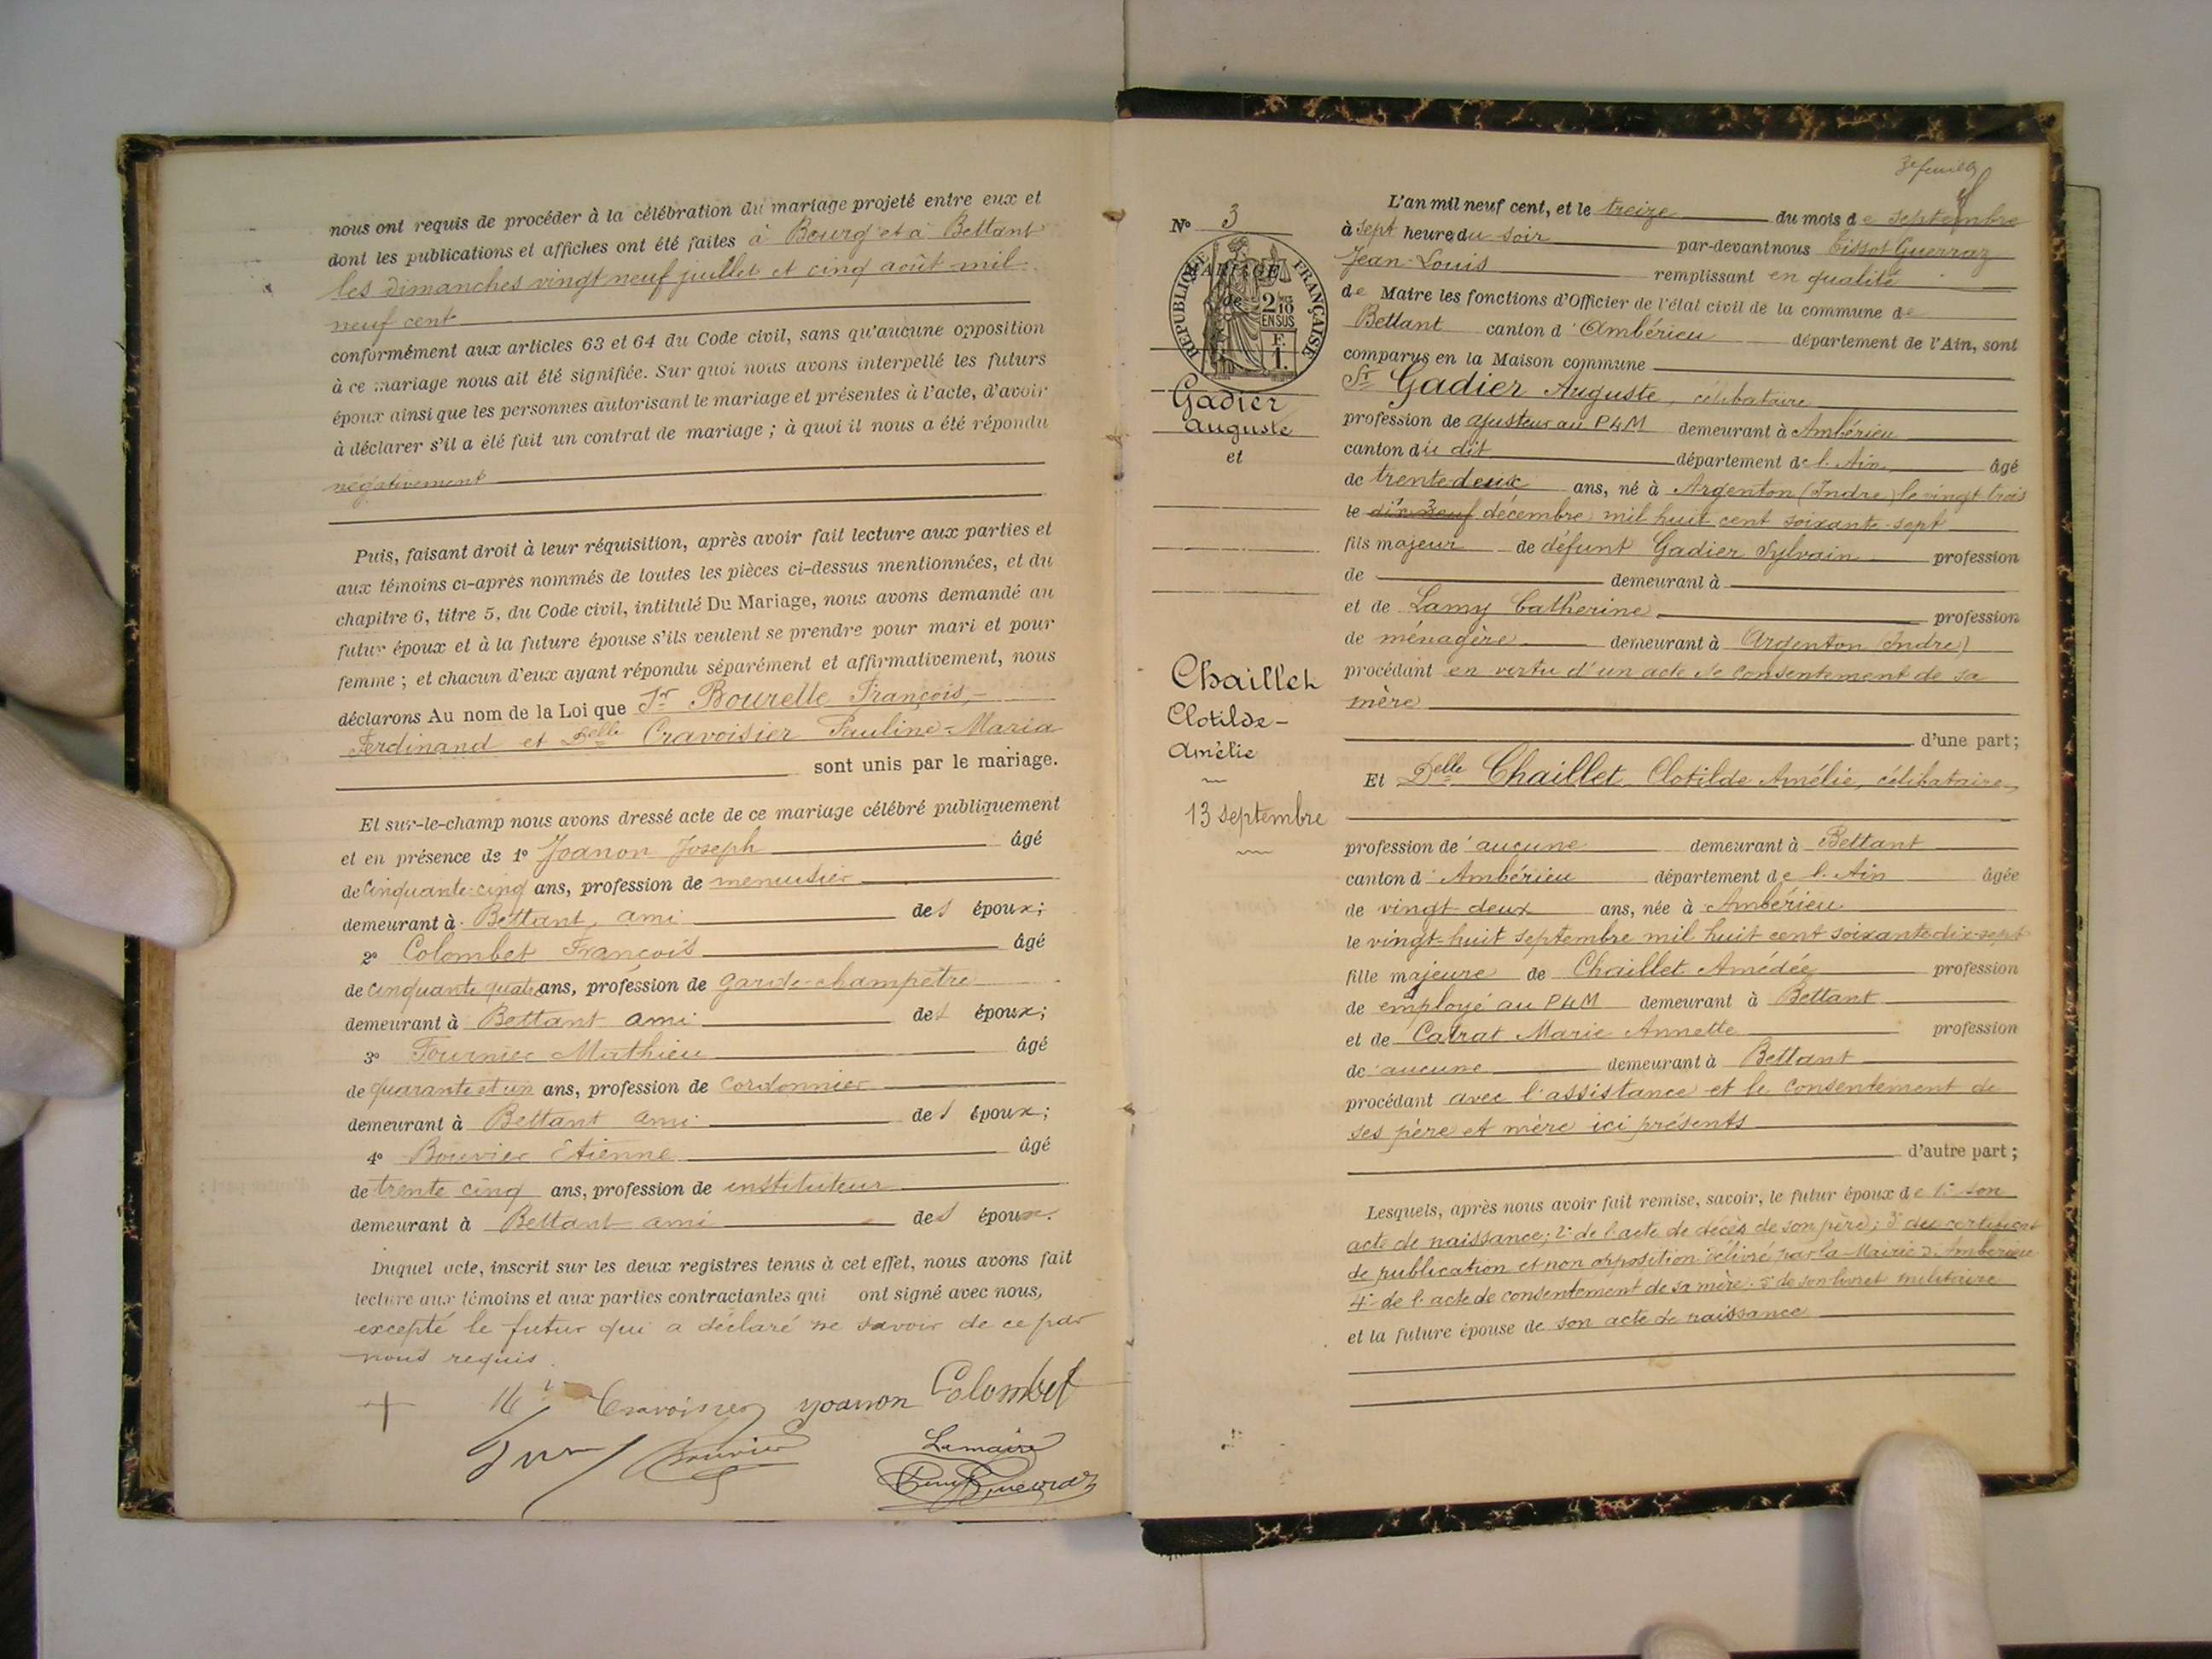 nous ont requis de procéder à la célébration du mariage projeté entre eux et
dont les publications et affiches ont été faites à Bourg et à Bettant
les dimanches vingt neuf juillet et cinq août mil
neuf cent
conformément aux articles 63 et 64 du Code civil, sans qu'aucune opposition
à ce mariage nous ait été signifiée. Sur quoi nous avons interpellé les futurs
époux ainsi que les personnes autorisant le mariage et présentes à l'acte, d'avoir
à déclarer s'il a été fait un contrat de mariage ; à quoi il nous a été répondu
négativement
Puis, faisant droit à leur réquisition, après avoir fait lecture aux parties et
aux témoins ci-après nommés de toutes les pièces ci-dessus mentionnées, et du
chapitre 6, titre 5, du Code civil, intitulé Du Mariage, nous avons demandé au
futur époux et à la future épouse s'ils veulent se prendre pour mari et pour
femme ; et chacun d'eux ayant répondu séparément et affirmativement, nous
déclarons Au nom de la Loi que Sr Bourelle François,
Ferdinand et Delle Cravoisier Pauline-Maria
sont unis par le mariage.
Et sur-le-champ nous avons dressé acte de ce mariage célébré publiquement
et en présence de 1° Joanon Joseph âgé
de Cinquante-cinq ans, profession de menuisier
demeurant à Bettant, ami des époux ;
2° Colombet François âgé
de cinquante quatre ans, profession de garde-champêtre
demeurant à Bettant ami des époux ;
3° Fournier Mathieu âgé
de quarante et un ans, profession de cordonnier
demeurant à Bettant ami des époux ;
4° Bouvier Etienne âgé
de trente cinq ans, profession de instituteur
demeurant à Bettant ami des époux.
Duquel acte, inscrit sur les deux registres tenus à cet effet, nous avons fait
lecture aux témoins et aux parties contractantes qui ont signé avec nous,
excepté le futur qui a déclaré ne savoir de ce par
nous requis.
+ Cravoisier yoanon Colombet
Bouvier Le maire
3e feuille
N° 3
RÉPUBLIQUE FRANÇAISE
MARIAGE
de
2/10 EN SUS
F. 1.
Gadier
Auguste
et
Chaillet
Clotilde-
Amélie
13 septembre
L'an mil neuf cent, et le treize du mois de septembre
à sept heure du soir par-devant nous Tissot Guerraz
Jean-Louis remplissant en qualité
de Maire les fonctions d'Officier de l'état civil de la commune de
Bettant canton d'Ambérieu département de l'Ain, sont
comparus en la Maison commune
Sr Gadier Auguste, célibataire
profession de ajusteur au PLM demeurant à Ambérieu
canton du dit département de l'Ain âgé
de trente-deux ans, né à Argenton (Indre) le vingt-trois
le dix-neuf décembre mil huit cent soixante-sept
fils majeur de défunt Gadier Sylvain profession
de demeurant à
et de Lamy Catherine profession
de ménagère demeurant à Argenton (Indre)
procédant en vertu d'un acte de consentement de sa
mère
d'une part ;
Et Delle Chaillet Clotilde Amélie, célibataire,
profession de aucune demeurant à Bettant
canton d'Ambérieu département de l'Ain âgée
de vingt-deux ans, née à Ambérieu
le vingt-huit septembre mil huit cent soixante-dix-sept
fille majeure de Chaillet Amédée profession
de employé au PLM demeurant à Bettant
et de Catrat Marie Annette profession
de aucune demeurant à Bettant
procédant avec l'assistance et le consentement de
ses père et mère ici présents
d'autre part ;
Lesquels, après nous avoir fait remise, savoir, le futur époux de 1° son
acte de naissance; 2° de l'acte de décès de son père; 3° du certificat
de publication et non opposition délivré par la Mairie d'Ambérieu
4° de l'acte de consentement de sa mère. 5° de son livret militaire
et la future épouse de son acte de naissance